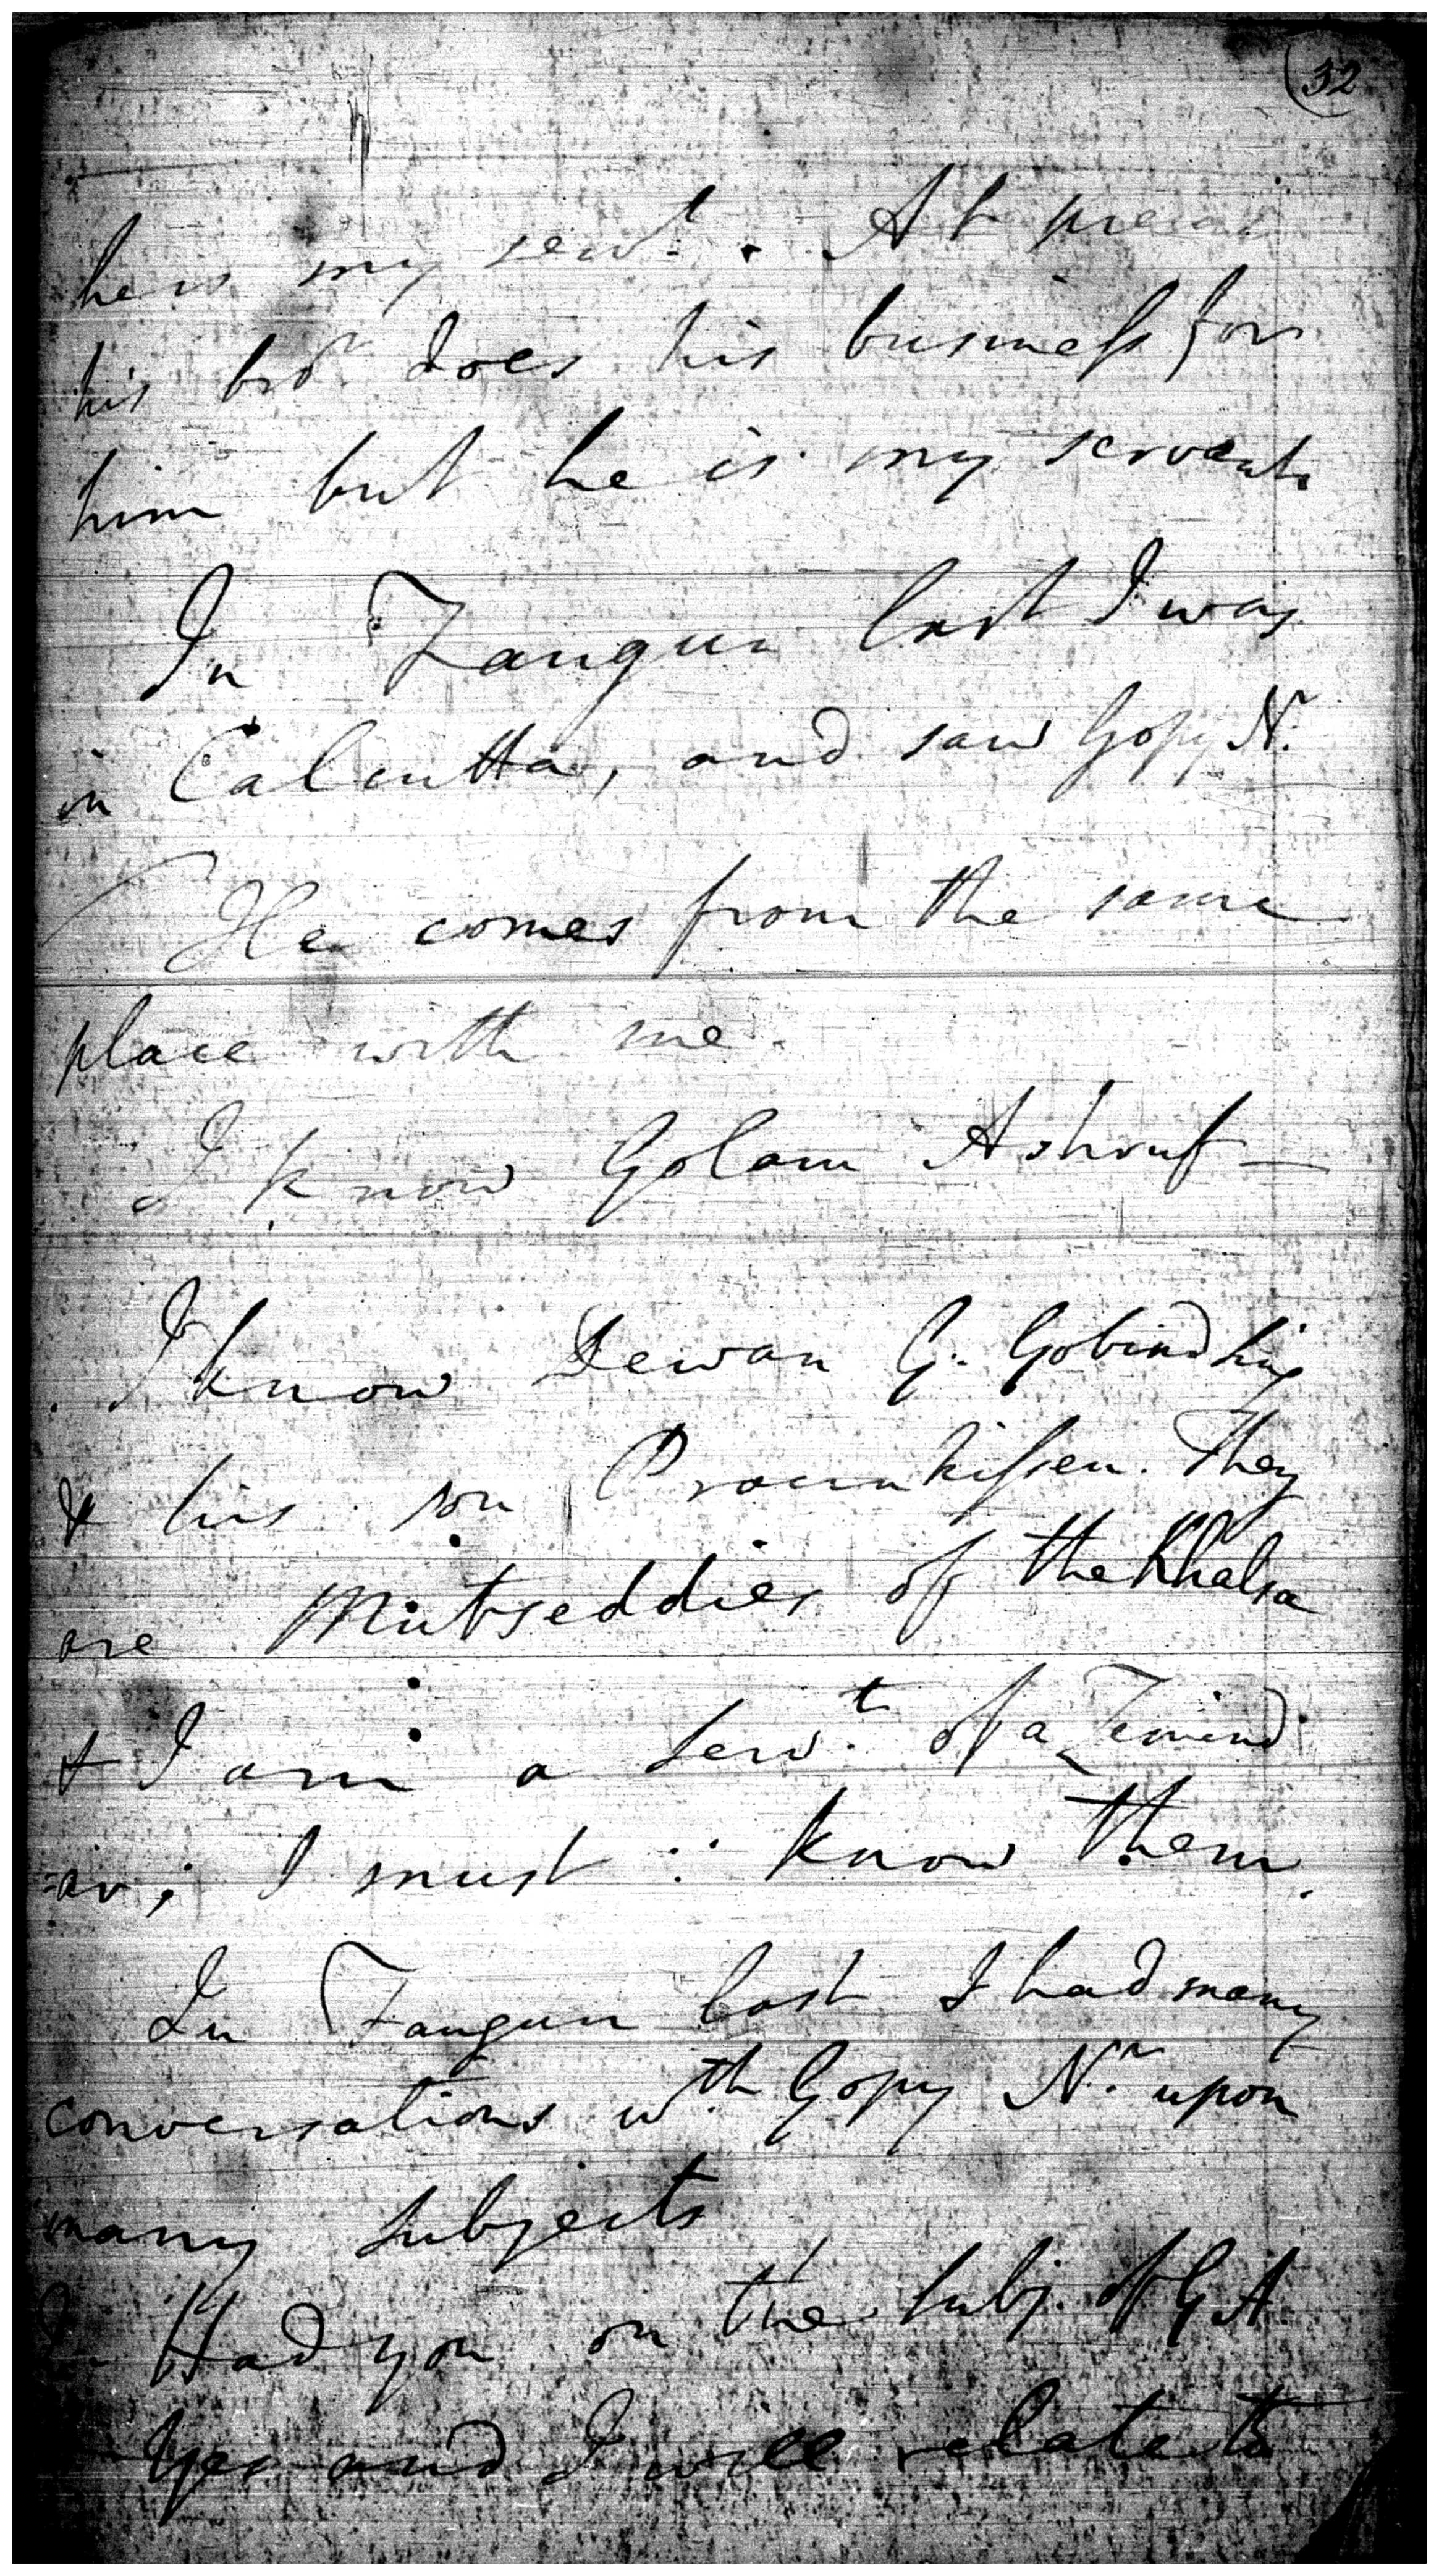 32
he is my servt. At present
his bror does his business for
him but he is my servant.
In Faugun last I was
in Calcutta, and saw Gopy Nr.
He comes from the same
place with me.
I know Golam Ashruf —
I know Dewan G. Gobind Sing
& his son Praunkissen. They
are Mutseddies of the Khalsa
& I am a Servt. of a Zemind
=ar; I must ∴ know them.
In Faugun last I had many
conversations wth. Gopy Nr. upon
many subjects
Had you on the subj. of G A
Yes and I will relate to